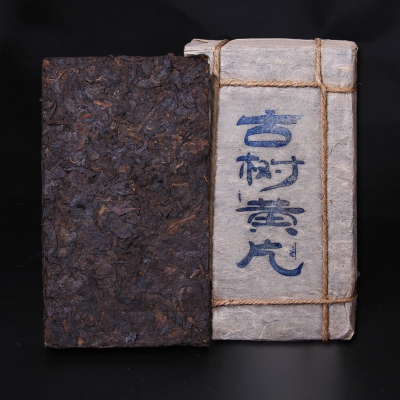 古树黄片